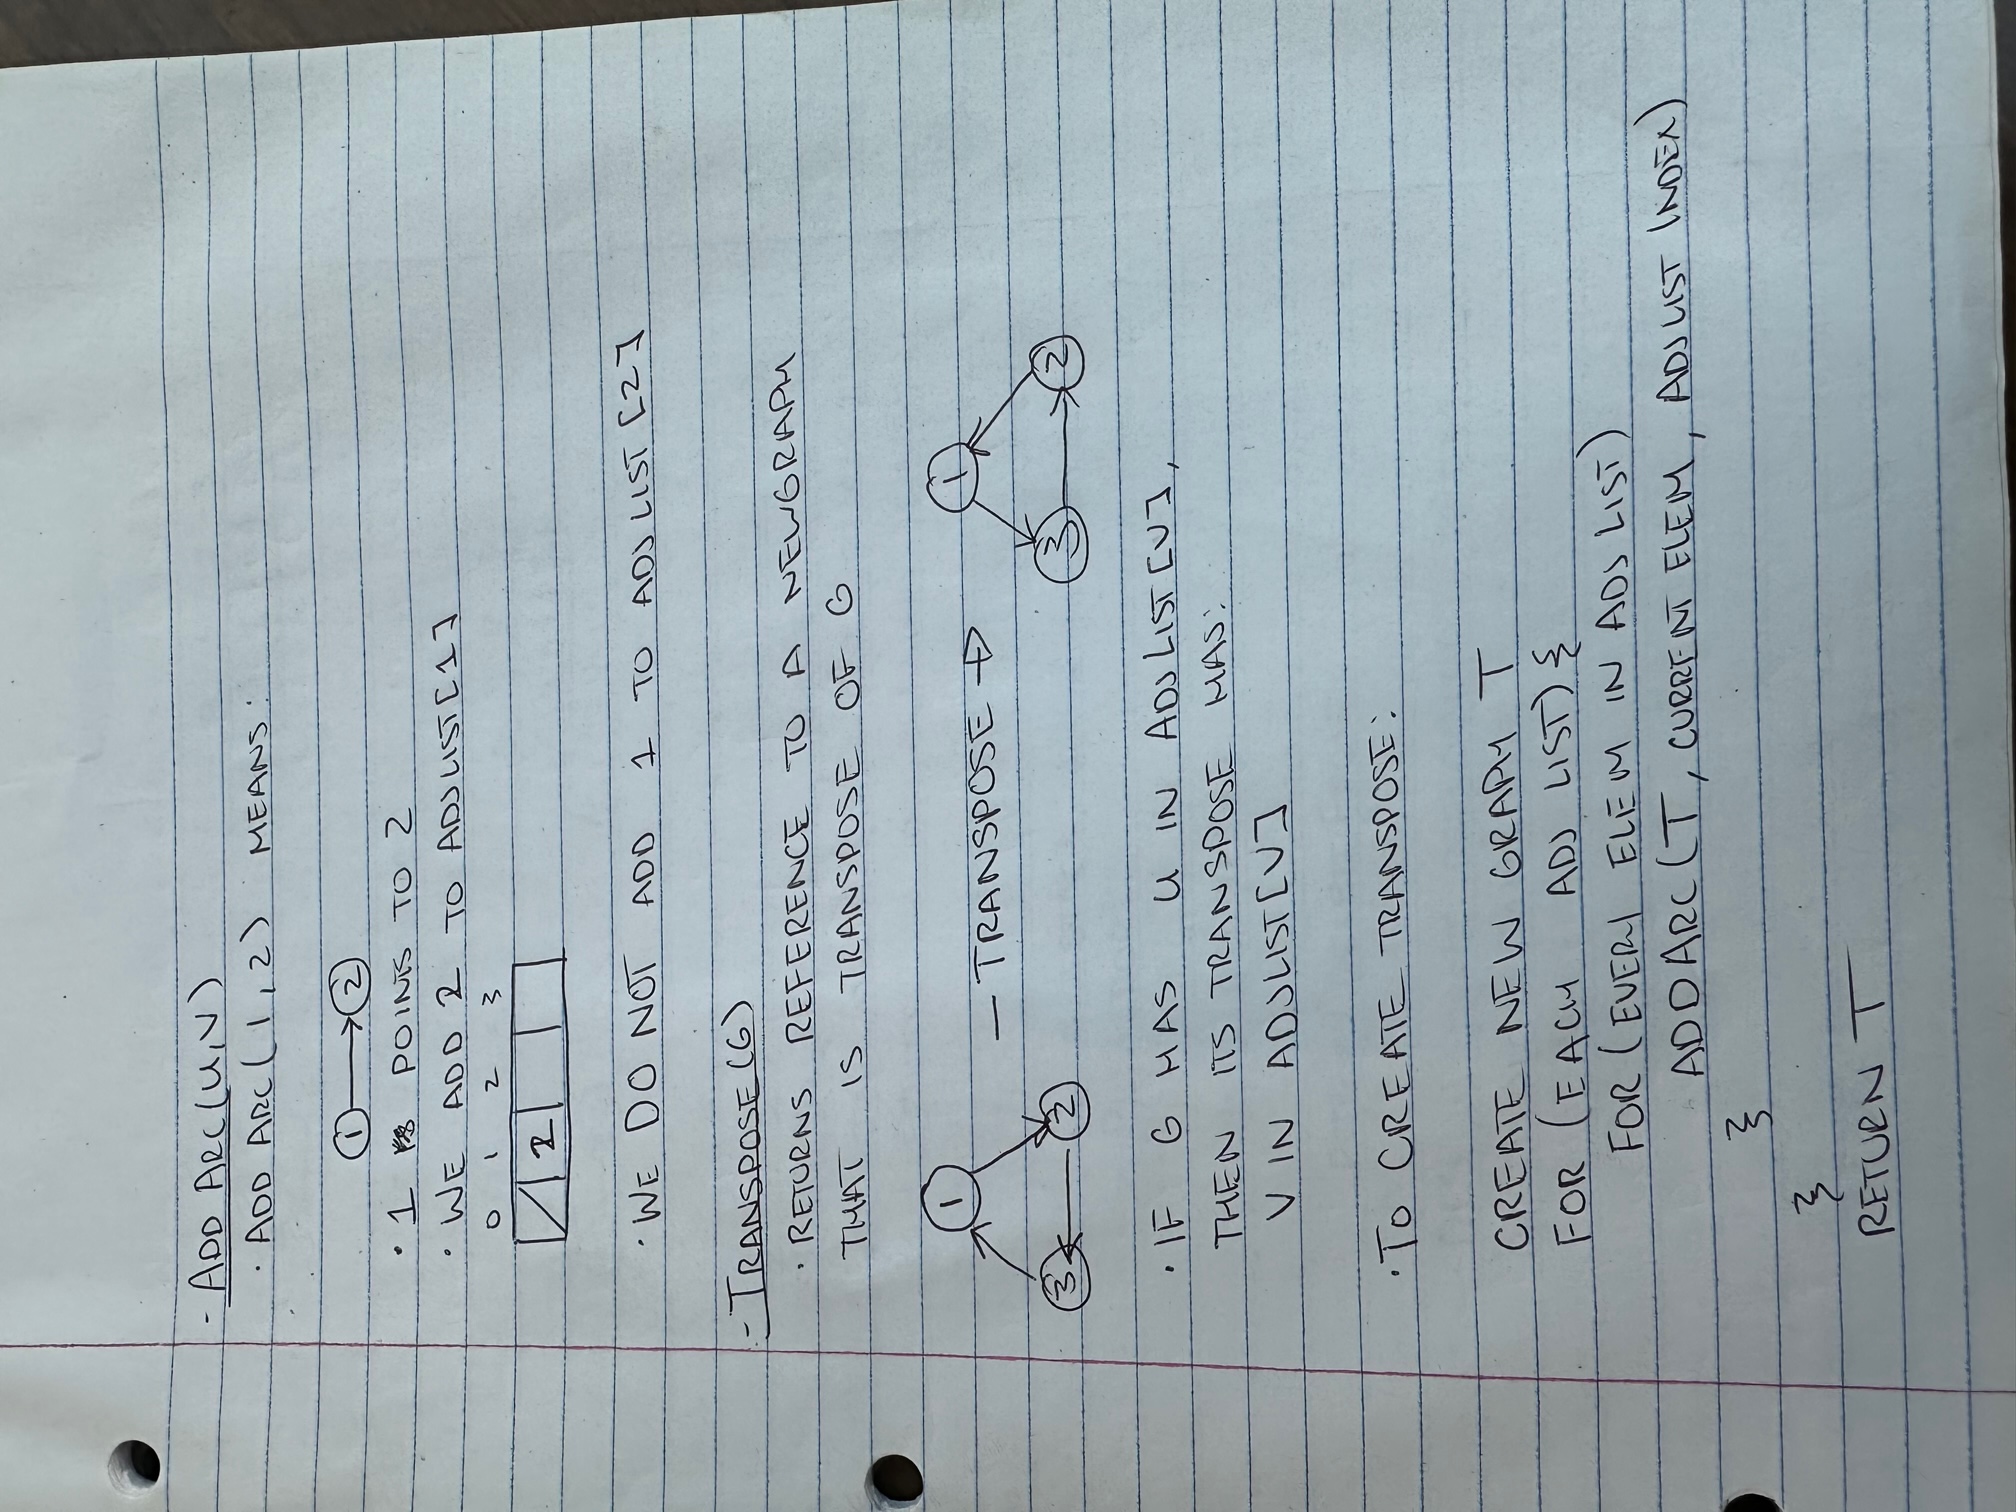 - ADD ARC(U,V)
· ADD ARC(1,2) MEANS:
1 2
· 1 POINTS TO 2
· WE ADD 2 TO ADJLIST[1]
0 1 2 3
2
· WE DO NOT ADD 1 TO ADJ LIST [2]
- TRANSPOSE (G)
· RETURNS REFERENCE TO A NEWGRAPH
THAT IS TRANSPOSE OF G
1 1
— TRANSPOSE →
3 2 3 2
· IF G HAS U IN ADJ LIST [V],
THEN ITS TRANSPOSE HAS:
V IN ADJLIST[V]
· TO CREATE TRANSPOSE:
CREATE NEW GRAPH T
FOR (EACH ADJ LIST) {
FOR (EVERY ELEM IN ADJ LIST)
ADDARC(T, CURRENT ELEM, ADJLIST INDEX)
}
}
RETURN T